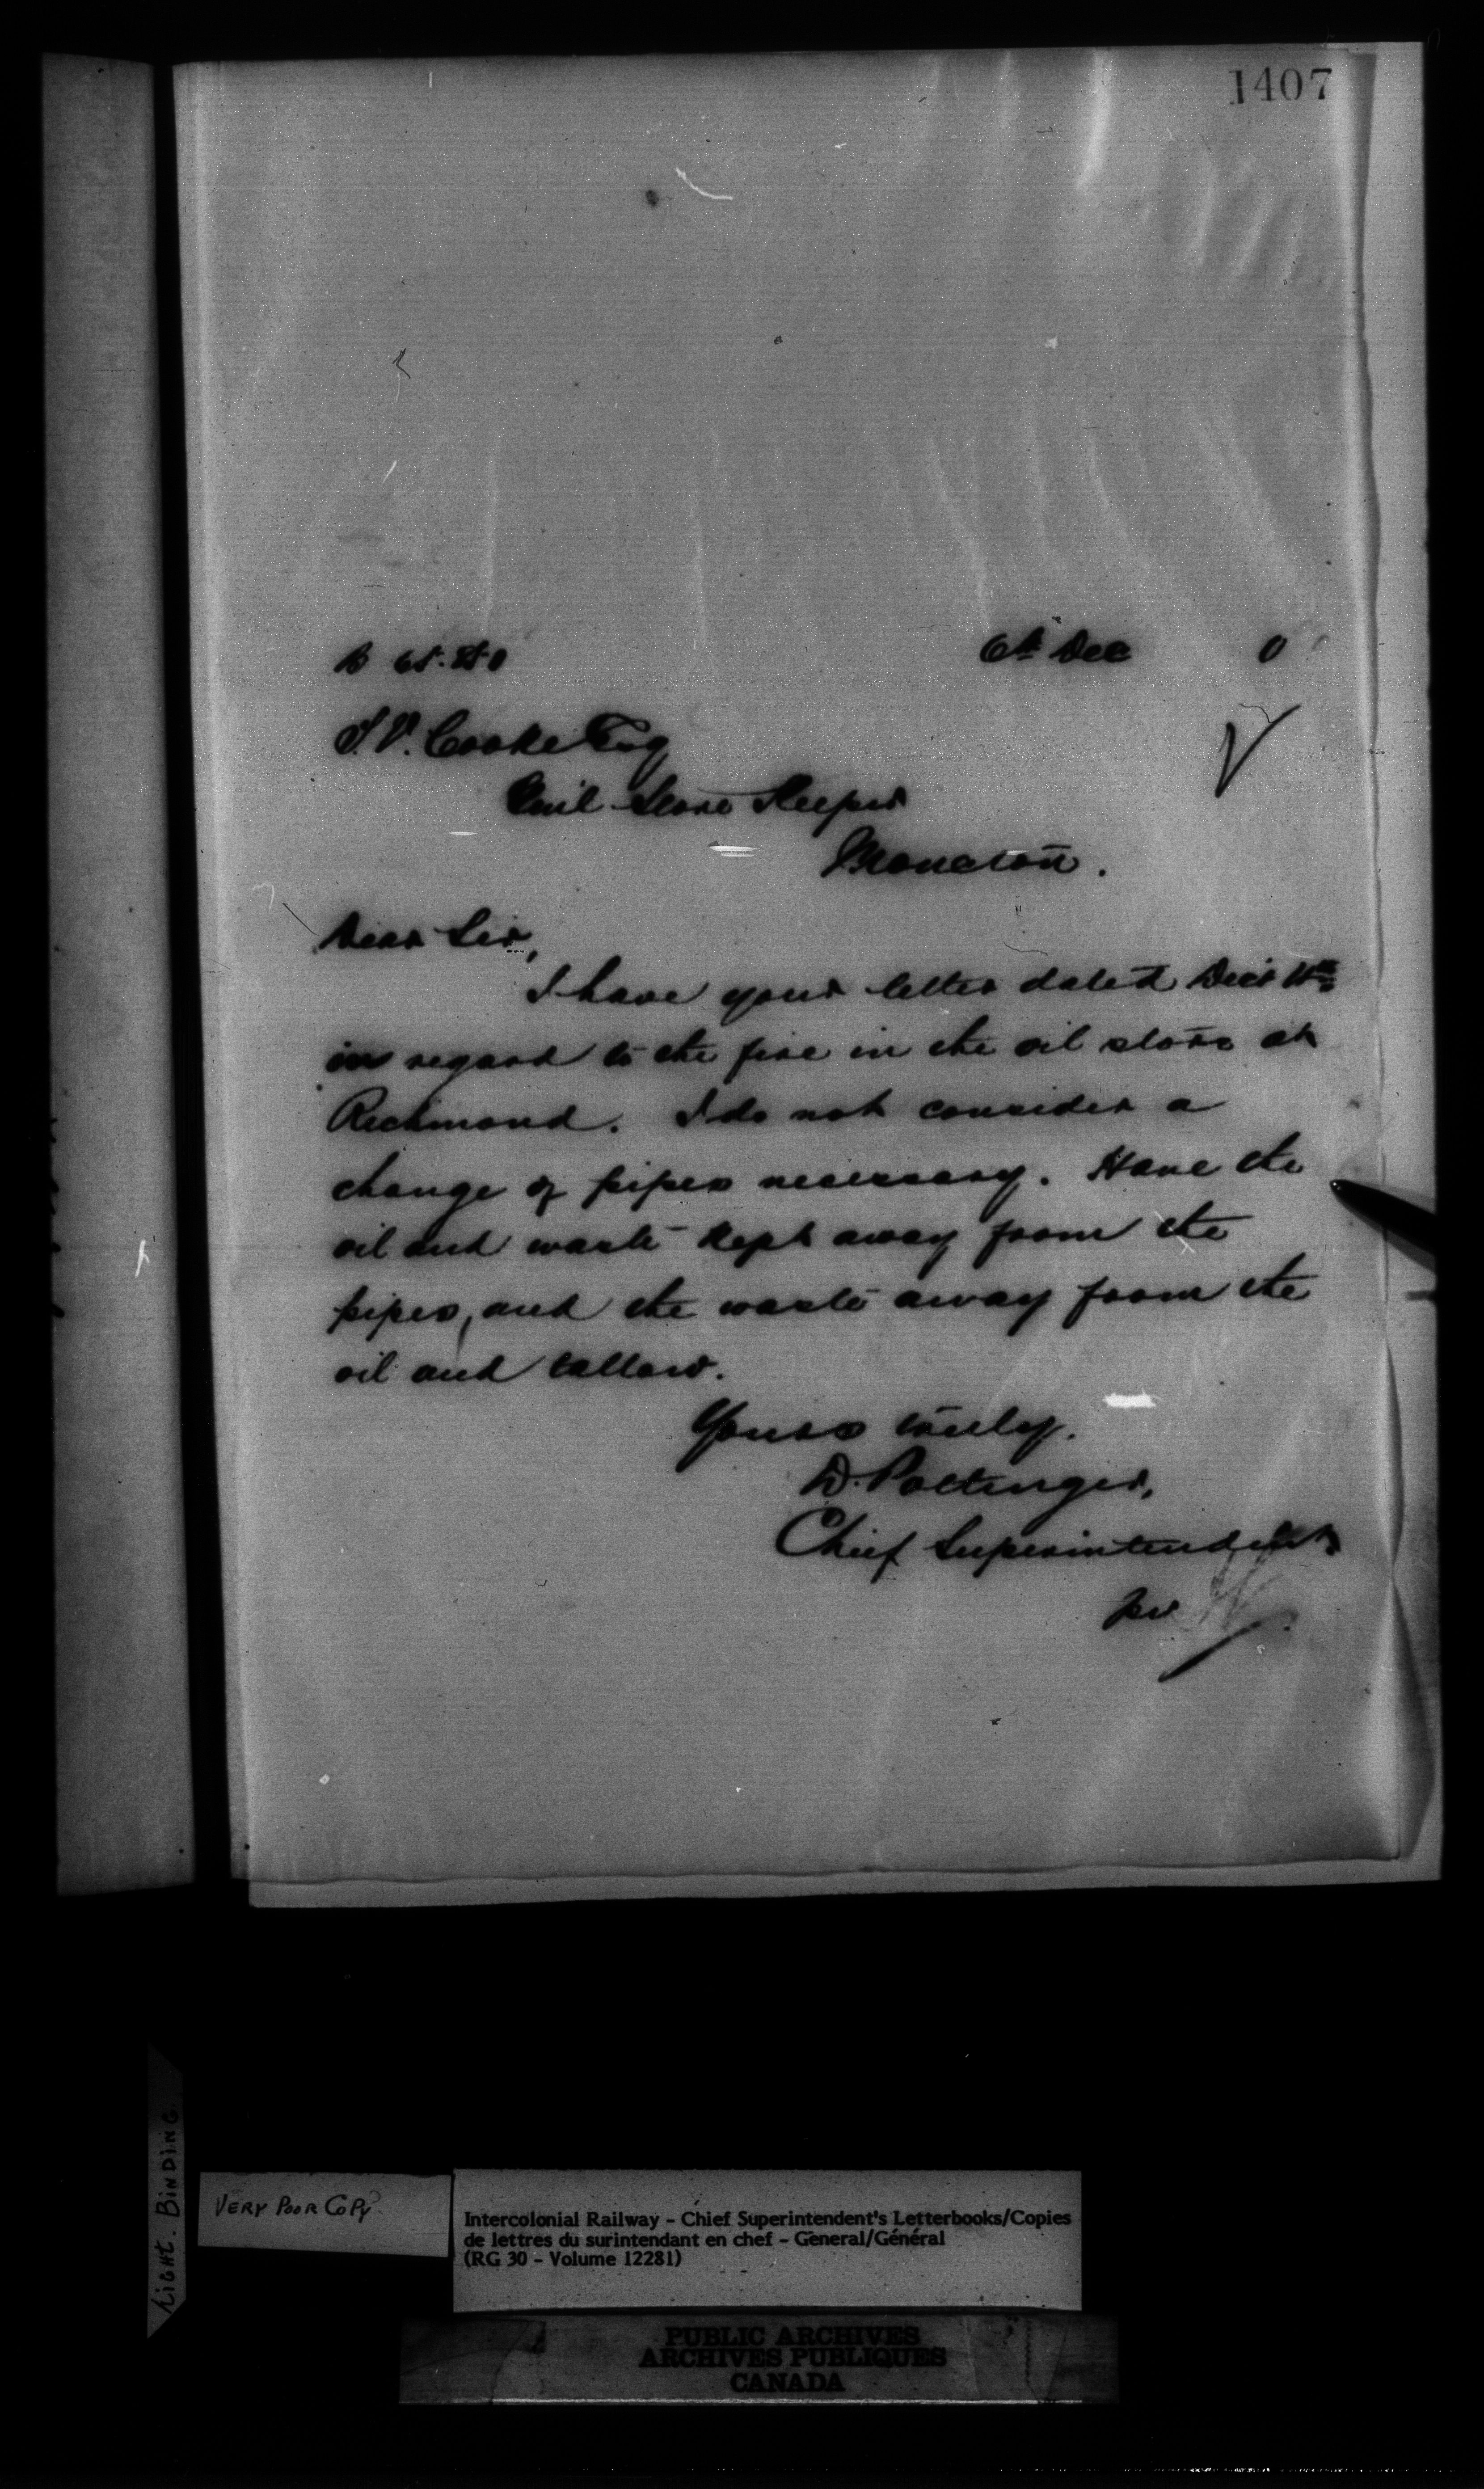 1407
6th Dec 0
T. V. Cooke Esq
Genl Store Keeper
Moncton.
Dear Sir,
I have your letter dated Decr 4th
in regard to the fire in the oil store at
Richmond. I do not consider a
change of pipes necessary. Have the
oil and waste kept away from the
pipes, and the waste away from the
oil and tallow.
Yours truly.
D. Pottinger,
Chief Superintendent
per
TIGHT. BINDING.
VERY POOR COPY
Intercolonial Railway – Chief Superintendent's Letterbooks/Copies
de lettres du surintendant en chef – General/Général
(RG 30 – Volume 12281)
PUBLIC ARCHIVES
ARCHIVES PUBLIQUES
CANADA